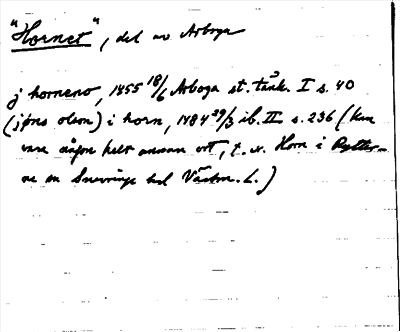 "Hornet", del av Arboga
j horneno, 1455 18/6 Arboga st. tänk. I s. 40
(jöns olson) i horn, 1484 29/3 ib. II s. 236 (kan
vara någon helt annan ort, t. ex. Horn i Rytter-
ne en Snevringe hd Västm. L.)